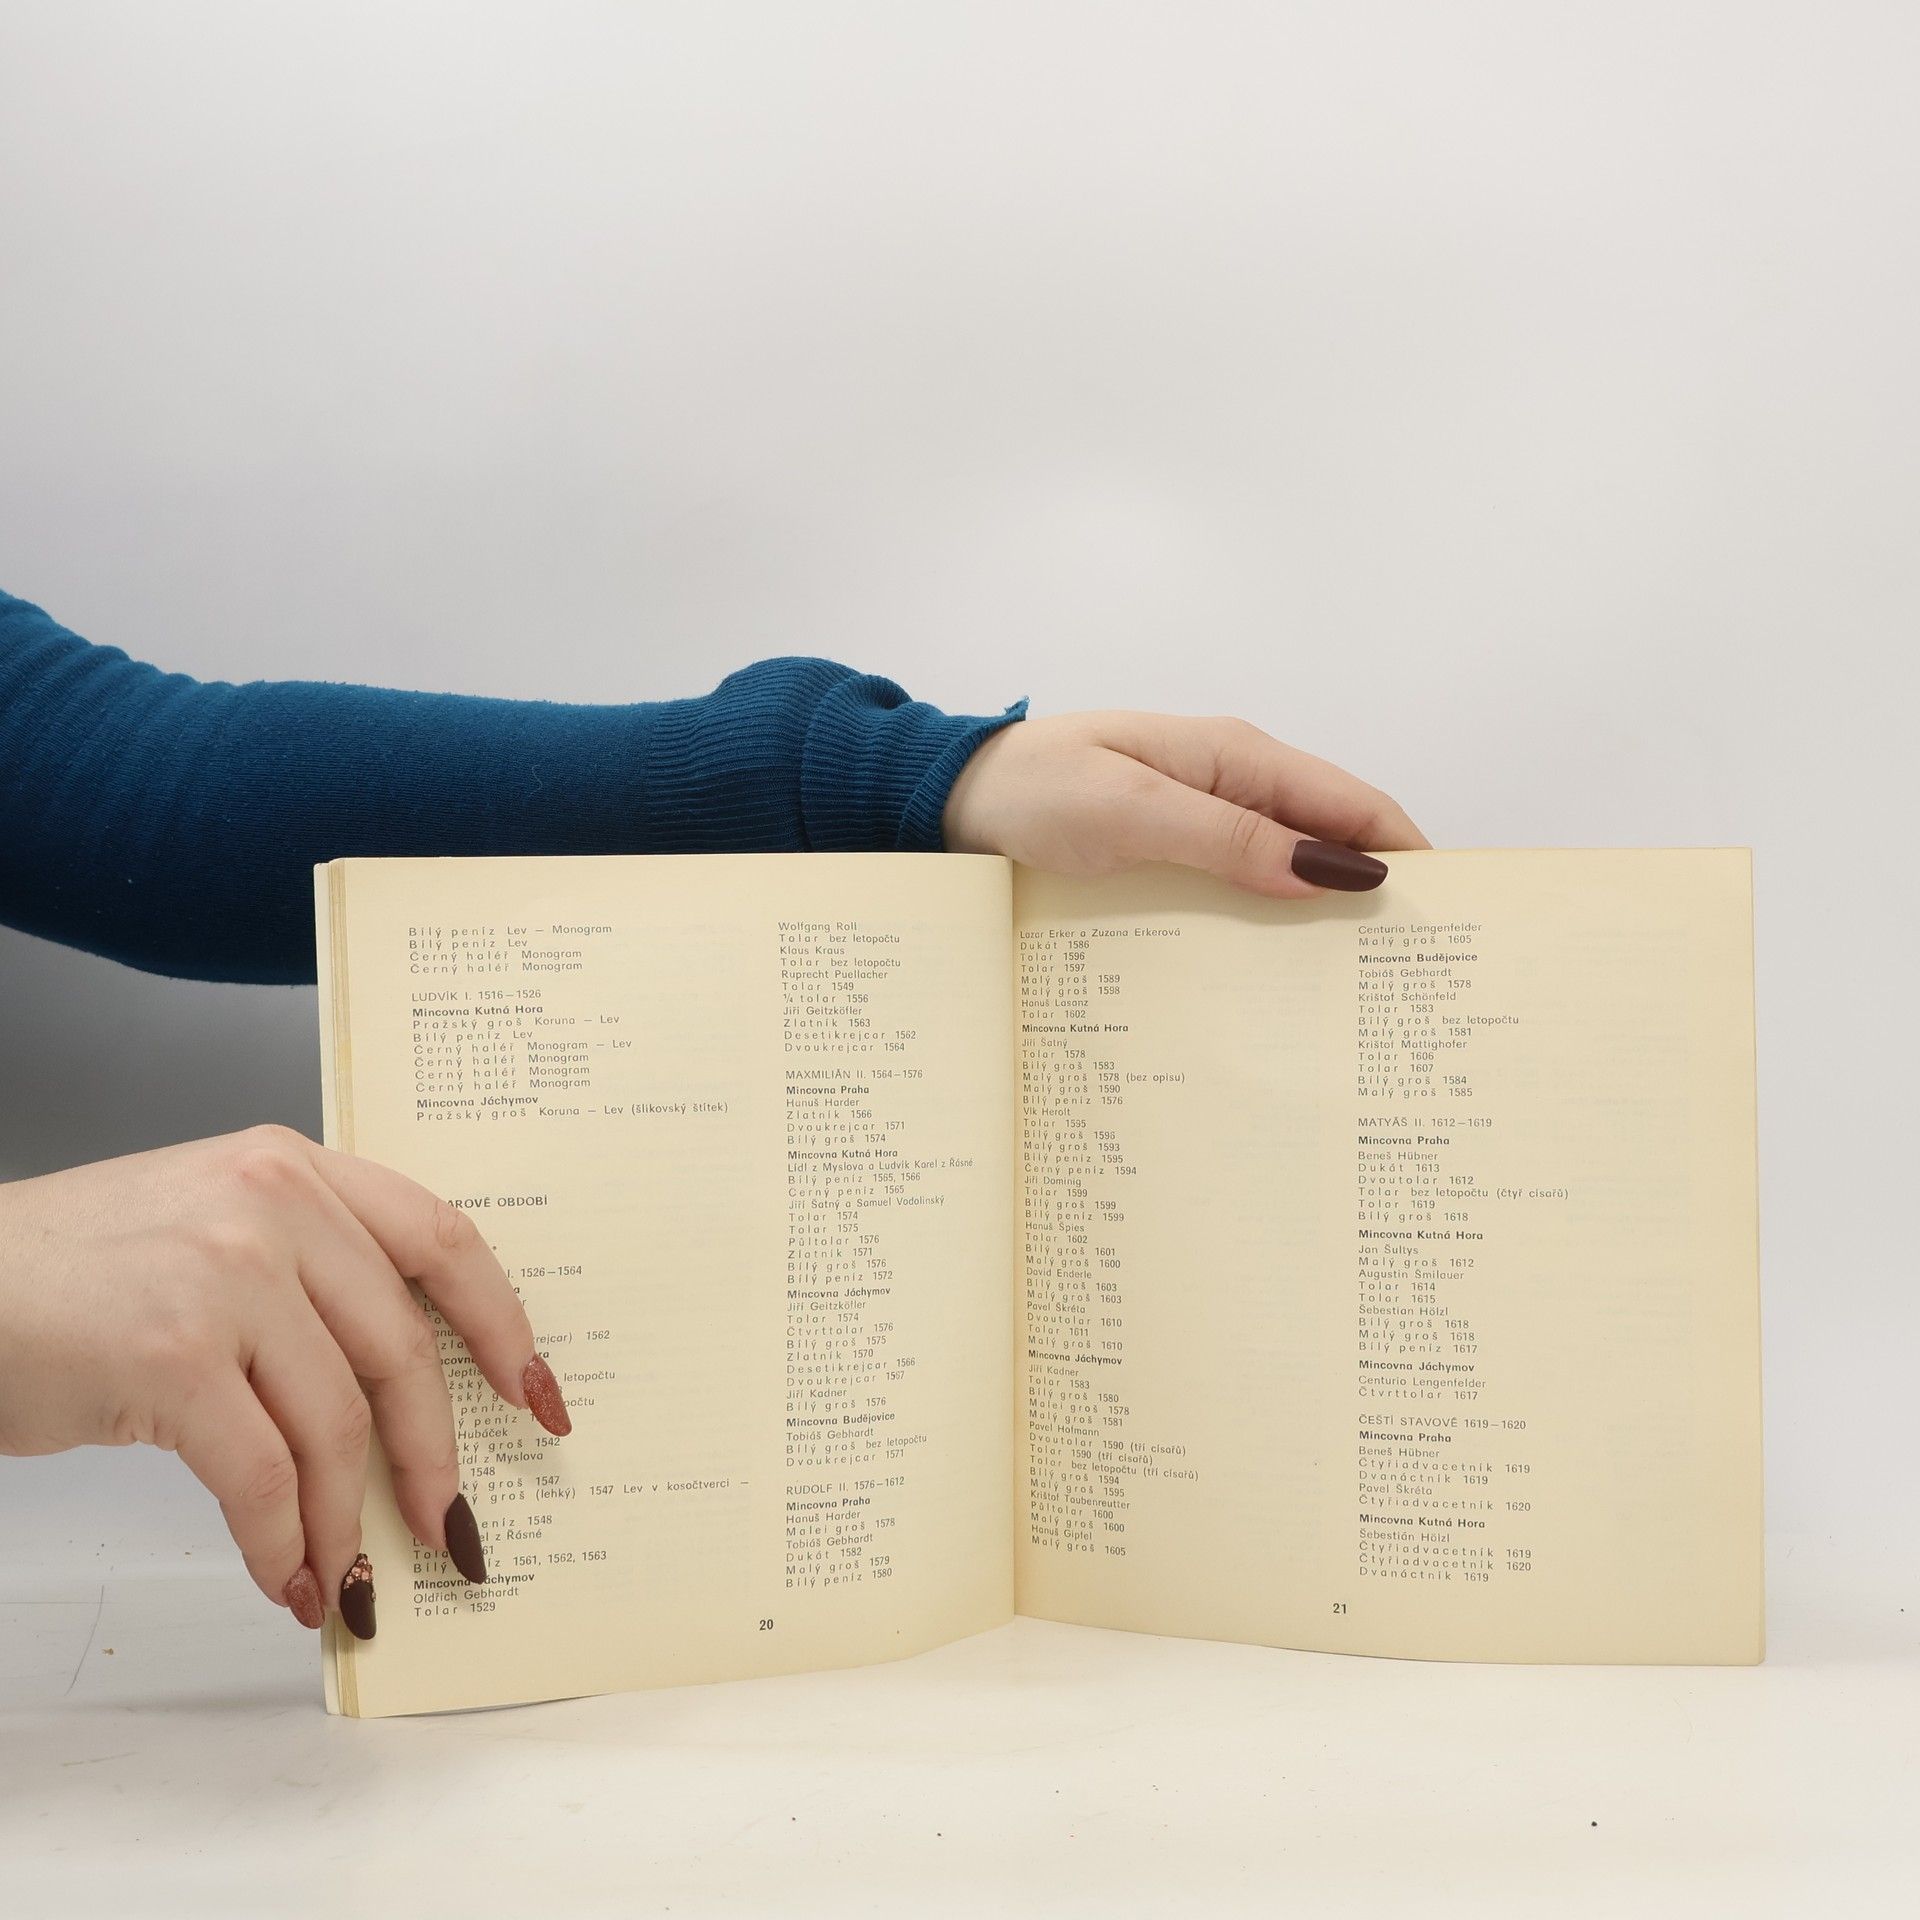 Bílý peníz Lev — Monogram
Bílý peníz Lev
Černý haléř Monogram
Černý haléř Monogram
LUDVÍK I. 1516—1526
Mincovna Kutná Hora
Pražský groš Koruna — Lev
Bílý peníz Lev
Černý haléř Monogram — Lev
Černý haléř Monogram
Černý haléř Monogram
Černý haléř Monogram
Mincovna Jáchymov
Pražský groš Koruna — Lev (šlikovský štítek)
OBDOBÍ
I. 1526—1564
1562
letopočtu
Hubáček
groš 1542
Lídl z Myslova
1548
groš 1547
groš (lehký) 1547 Lev v kosočtverci —
1548
z Řásné
1561, 1562, 1563
Mincovna Jáchymov
Oldřich Gebhardt
Tolar 1529
Wolfgang Roll
Tolar bez letopočtu
Klaus Kraus
Tolar bez letopočtu
Ruprecht Puellacher
Tolar 1549
¼ tolar 1556
Jiří Geitzkófler
Zlatník 1563
Desetikrejcar 1562
Dvoukrejcar 1564
MAXMILIÁN II. 1564—1576
Mincovna Praha
Hanuš Harder
Zlatník 1566
Dvoukrejcar 1571
Bílý groš 1574
Mincovna Kutná Hora
Lídl z Myslova a Ludvík Karel z Řásné
Bílý peníz 1565, 1566
Černý peníz 1565
Jiří Šatný a Samuel Vodolinský
Tolar 1574
Tolar 1575
Půltolar 1576
Zlatník 1571
Bílý groš 1576
Bílý peníz 1572
Mincovna Jáchymov
Jiří Geitzkófler
Tolar 1574
Čtvrttolar 1576
Bílý groš 1575
Zlatník 1570
Desetikrejcar 1566
Dvoukrejcar 1567
Jiří Kadner
Bílý groš 1576
Mincovna Budějovice
Tobiáš Gebhardt
Bílý groš bez letopočtu
Dvoukrejcar 1571
RUDOLF II. 1576—1612
Mincovna Praha
Hanuš Harder
Malei groš 1578
Tobiáš Gebhardt
Dukát 1582
Malý groš 1579
Bílý peníz 1580
20
Lazar Erker a Zuzana Erkerová
Dukát 1586
Tolar 1596
Tolar 1597
Malý groš 1589
Malý groš 1598
Hanuš Lasanz
Tolar 1602
Mincovna Kutná Hora
Jiří Šatný
Tolar 1578
Bílý groš 1583
Malý groš 1578 (bez opisu)
Malý groš 1590
Bílý peníz 1576
Vlk Herolt
Tolar 1595
Bílý groš 1596
Malý groš 1593
Bílý peníz 1595
Černý peníz 1594
Jiří Dominig
Tolar 1599
Bílý groš 1599
Bílý peníz 1599
Hanuš Špies
Tolar 1602
Bílý groš 1601
Malý groš 1600
David Enderle
Bílý groš 1603
Malý groš 1603
Pavel Škréta
Dvoutolar 1610
Tolar 1611
Malý groš 1610
Mincovna Jáchymov
Jiří Kadner
Tolar 1583
Bílý groš 1580
Malei groš 1578
Malý groš 1581
Pavel Hofmann
Dvoutolar 1590 (tří císařů)
Tolar 1590 (tří císařů)
Tolar bez letopočtu (tří císařů)
Bílý groš 1594
Malý groš 1595
Krištof Taubenreutter
Půltolar 1600
Malý groš 1600
Hanuš Gipfel
Malý groš 1605
Centurio Lengenfelder
Malý groš 1605
Mincovna Budějovice
Tobiáš Gebhardt
Malý groš 1578
Krištof Schönfeld
Tolar 1583
Bílý groš bez letopočtu
Malý groš 1581
Krištof Mattighofer
Tolar 1606
Tolar 1607
Bílý groš 1584
Malý groš 1585
MATYÁŠ II. 1612—1619
Mincovna Praha
Beneš Hübner
Dukát 1613
Dvoutolar 1612
Tolar bez letopočtu (čtyř císařů)
Tolar 1619
Bílý groš 1618
Mincovna Kutná Hora
Jan Šultys
Malý groš 1612
Augustin Šmilauer
Tolar 1614
Tolar 1615
Šebestian Hölzl
Bílý groš 1618
Malý groš 1618
Bílý peníz 1617
Mincovna Jáchymov
Centurio Lengenfelder
Čtvrttolar 1617
ČEŠTÍ STAVOVÉ 1619—1620
Mincovna Praha
Beneš Hübner
Čtyřiadvacetník 1619
Dvanáctník 1619
Pavel Škréta
Čtyřiadvacetník 1620
Mincovna Kutná Hora
Šebestián Hölzl
Čtyřiadvacetník 1619
Čtyřiadvacetník 1620
Dvanáctník 1619
21